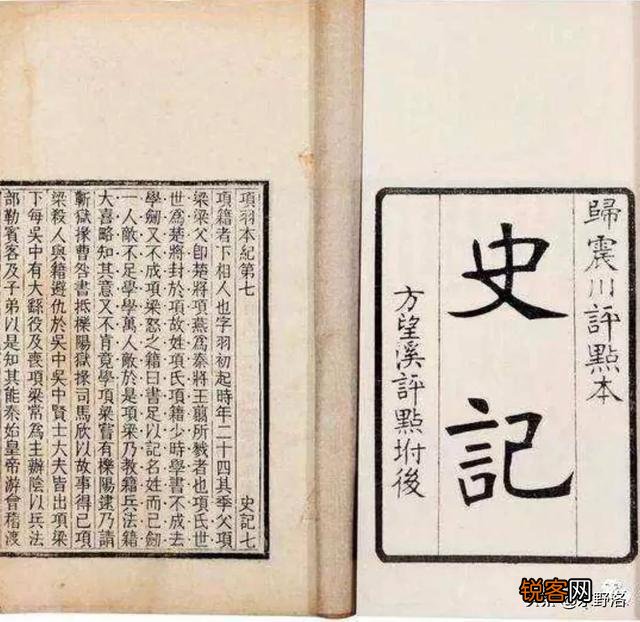 歸震川評點本
史記
方望溪評點坿後
項羽本紀第七 史記七
項籍者下相人也字羽初起時年二十四其季父項
梁梁父卽楚將項燕爲秦將王翦所戮者也項氏世
世爲楚將封於項故姓項氏項籍少時學書不成去
學劒又不成項梁怒之籍曰書足以記名姓而已劒
一人敵不足學學萬人敵於是項梁乃教籍兵法籍
大喜略知其意又不肯竟學項梁嘗有櫟陽逮乃請
蘄獄掾曹咎書抵櫟陽獄掾司馬欣以故事得已項
梁殺人與籍避仇於吳中吳中賢士大夫皆出項梁
下每吳中有大繇役及喪項梁常爲主辦陰以兵法
部勒賓客及子弟以是知其能秦始皇帝游會稽渡
锐客网
野洛